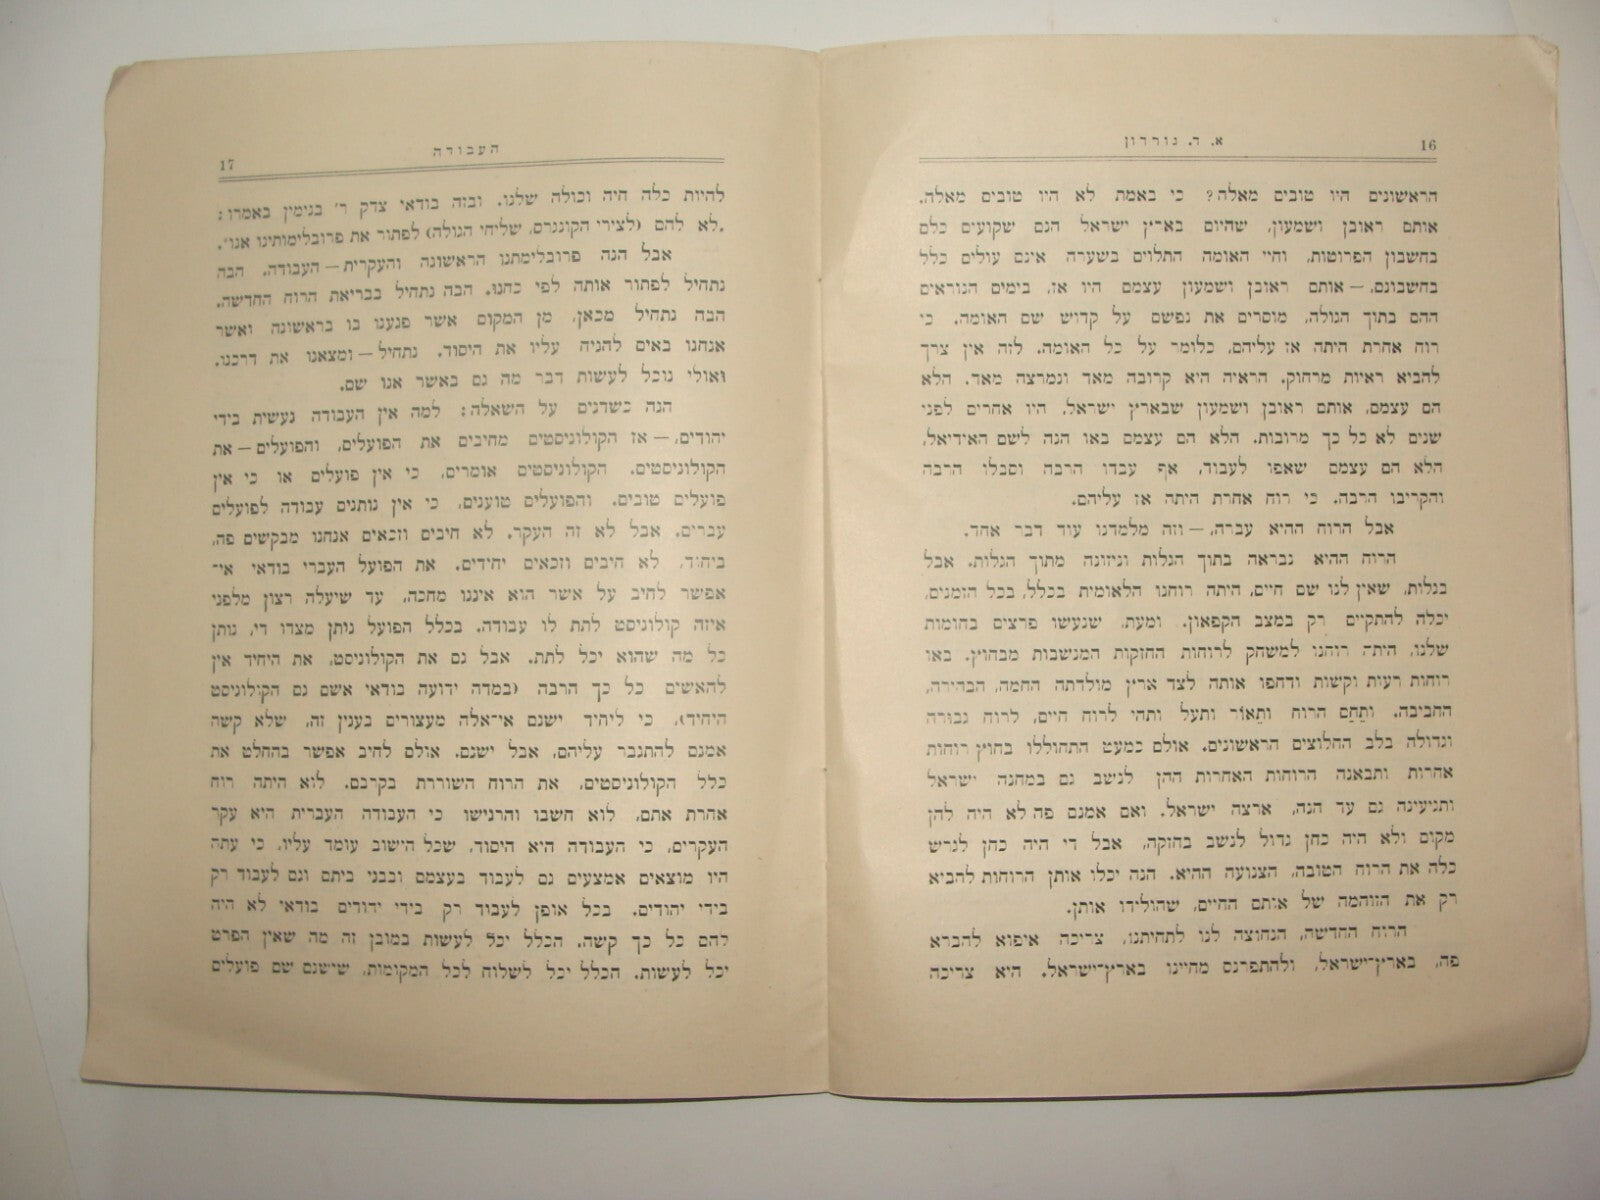 16
א. ד. גורדון
הראשונים היו טובים מאלה? כי באמת לא היו טובים מאלה.
אותם ראובן ושמעון, שהיום בארץ ישראל הנם שקועים כלם
בחשבון הפרוטות, וחיי האומה התלוים בשערה אינם עולים כלל
בחשבונם, — אותם ראובן ושמעון עצמם היו אז, בימים הנוראים
ההם בתוך הגולה, מוסרים את נפשם על קדוש שם האומה. כי
רוח אחרת היתה אז עליהם, כלומר על כל האומה. לזה אין צרך
להביא ראיות מרחוק. הראיה היא קרובה מאד ונמרצה מאד. הלא
הם עצמם, אותם ראובן ושמעון שבארץ ישראל, היו אחרים לפני
שנים לא כל כך מרובות. הלא הם עצמם באו הנה לשם האידיאל,
הלא הם עצמם שאפו לעבוד, אף עבדו הרבה וסבלו הרבה
והקריבו הרבה. כי רוח אחרת היתה אז עליהם.
אבל הרוח ההיא עברה, — וזה מלמדנו עוד דבר אחד.
הרוח ההיא נבראה בתוך הגלות וניזונה מתוך הגלות. אבל
בגלות, שאין לנו שם חיים, היתה רוחנו הלאומית בכלל, בכל הזמנים,
יכלה להתקיים רק במצב הקפאון. ומעת, שנעשו פרצים בחומות
שלנו, היתה רוחנו למשחק לרוחות החזקות המנשבות מבחוץ. באו
רוחות רעית וקשות ודחפו אותה לצד ארץ מולדתה החמה, הבהירה,
החביבה. ותֵחַם הרוח ותֵאוֹר ותעל ותהי לרוח חיים, לרוח גבורה
וגדולה בלב החלוצים הראשונים. אולם כמעט התחוללו בחוץ רוחות
אחרות ותבאנה הרוחות האחרות ההן לנשב גם במחנה ישראל
ותגיעינה גם עד הנה, ארצה ישראל. ואם אמנם פה לא היה להן
מקום ולא היה כחן גדול לנשב בחזקה, אבל די היה כחן לגרש
כלה את הרוח הטובה, הצנועה ההיא. הנה יכלו אותן הרוחות להביא
רק את הזוהמה של אותם החיים, שהולידו אותן.
הרוח החדשה, הנחוצה לנו לתחיתנו, צריכה איפוא להברא
פה, בארץ־ישראל, ולהתפרנס מחיינו בארץ־ישראל. היא צריכה
העבודה
17
להיות כלה חיה וכולה שלנו. ובזה בודאי צדק ר' בנימין באמרו:
„לא להם (לצירי הקונגרס, שליחי הגולה) לפתור את פרובלימותינו אנו".
אבל הנה פרובלימתנו הראשונה והעקרית — העבודה. הבה
נתחיל לפתור אותה לפי כחנו. הבה נתחיל בבריאת הרוח החדשה.
הבה נתחיל מכאן, מן המקום אשר פגענו בו בראשונה ואשר
אנחנו באים להניה עליו את היסוד. נתחיל — ומצאנו את דרכנו.
ואולי נוכל לעשות דבר מה גם באשר אנו שם.
הנה כשדנים על השאלה: למה אין העבודה נעשית בידי
יהודים, — אז הקולוניסטים מחיבים את הפועלים, והפועלים — את
הקולוניסטים. הקולוניסטים אומרים, כי אין פועלים או כי אין
פועלים טובים. והפועלים טוענים, כי אין נותנים עבודה לפועלים
עברים. אבל לא זה העקר. לא חיבים וזכאים אנחנו מבקשים פה,
ביחוד, לא חיבים וזכאים יחידים. את הפועל העברי בודאי אי־
אפשר לחיב על אשר הוא איננו מחכה, עד שיעלה רצון מלפני
איזה קולוניסט לתת לו עבודה. בכלל הפועל נותן מצדו די, נותן
כל מה שהוא יכל לתת. אבל גם את הקולוניסט, את היחיד אין
להאשים כל כך הרבה (במדה ידועה בודאי אשם גם הקולוניסט
היחיד), כי ליחיד ישנם אי־אלה מעצורים בענין זה, שלא קשה
אמנם להתגבר עליהם, אבל ישנם. אולם לחיב אפשר בהחלט את
כלל הקולוניסטים, את הרוח השוררת בקרבם. לוא היתה רוח
אחרת אתם, לוא חשבו והרגישו כי העבודה העברית היא עקר
העקרים, כי העבודה היא היסוד, שכל הישוב עומד עליו, כי עתה
היו מוצאים אמצעים גם לעבוד בעצמם ובבני ביתם וגם לעבוד רק
בידי יהודים. בכל אופן לעבוד רק בידי יהודים בודאי לא היה
להם כל כך קשה. הכלל יכל לעשות במובן זה מה שאין הפרט
יכל לעשות. הכלל יכל לשלוח לכל המקומות, שישנם שם פועלים